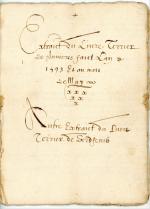 Extraict du Livre Terrier
de
faict L'an
1593 Et au mois
de May
xxx
xxx
x
Autre Extraict du Livre
Terrier de